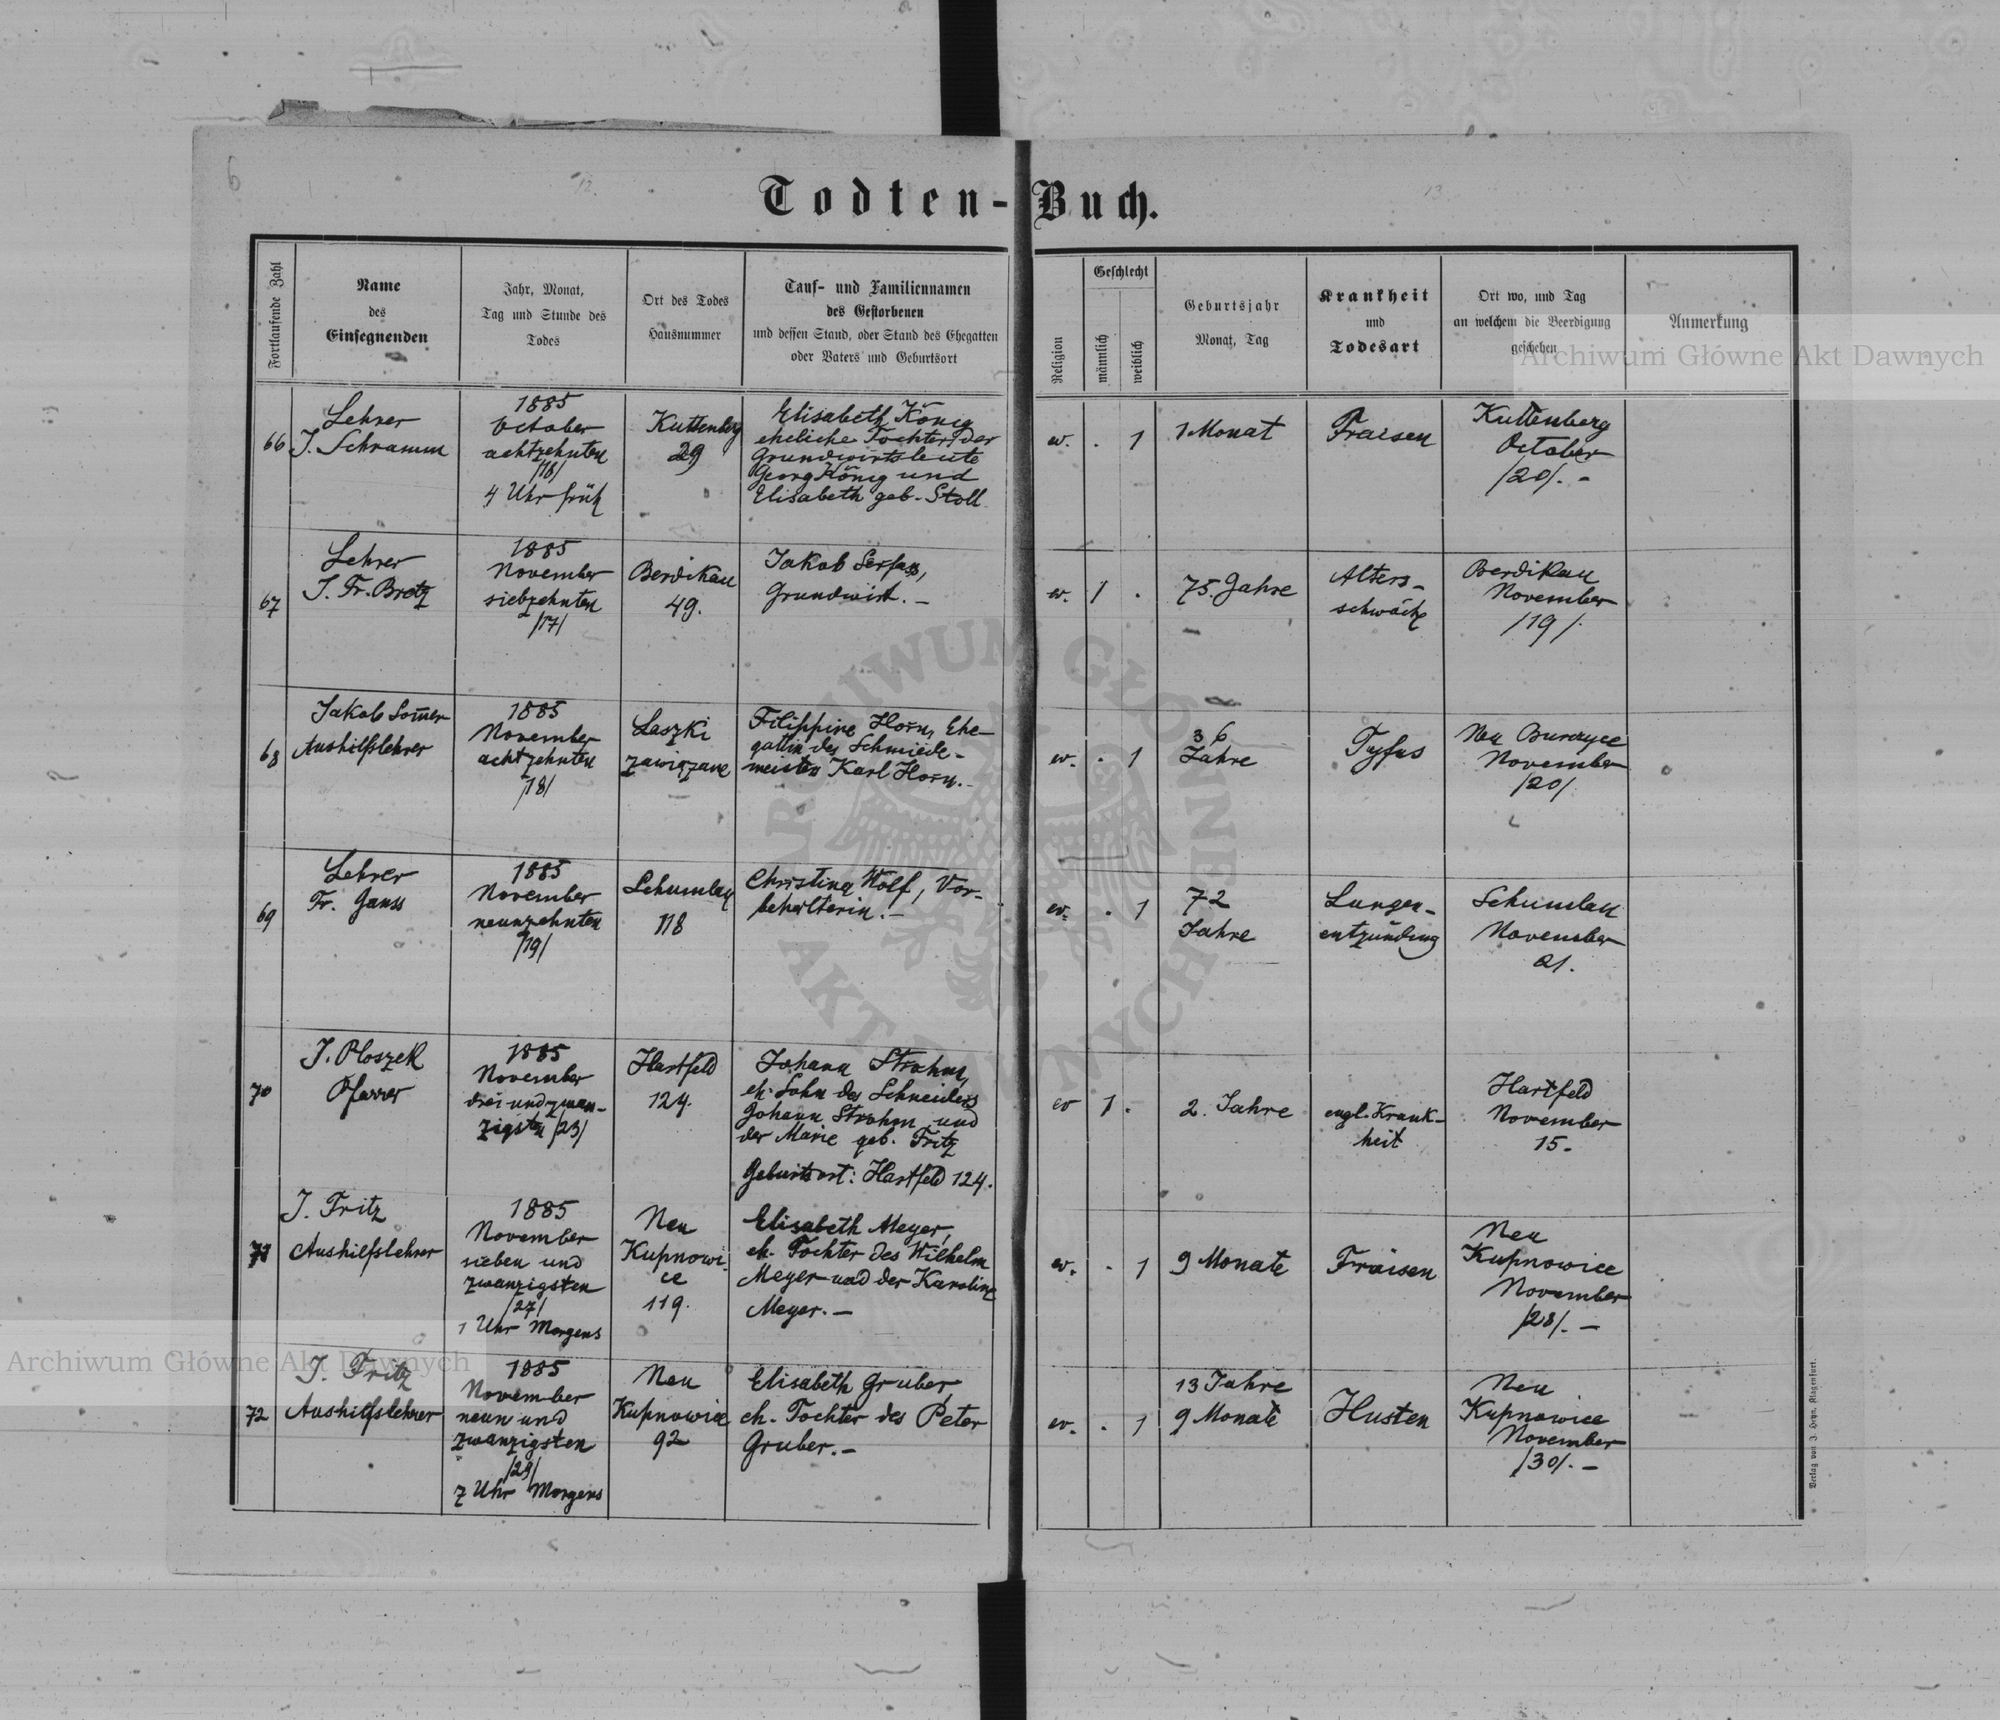 6
12.
13.
Todten-Buch.
Fortlaufende Zahl
Name
des
Einsegnenden
Jahr, Monat,
Tag und Stunde des
Todes
Ort des Todes
Hausnummer
Tauf- und Familiennamen
des Gestorbenen
und dessen Stand, oder Stand des Ehegatten
oder Vaters und Geburtsort
Religion
Geschlecht
männlich
weiblich
Geburtsjahr
Monat, Tag
Krankheit
und
Todesart
Ort wo, und Tag
an welchem die Beerdigung
geschehen
Anmerkung
66
Lehrer
J. Schramm
1885
October
achtzehnten
/18/
4 Uhr früh
Kuttenberg
29
Elisabeth König
eheliche Tochter der
Grundwirtsleute
Georg König und
Elisabeth geb. Stoll
ev.
.
1
1 Monat
Fraisen
Kuttenberg
October
/20/. -
67
Lehrer
J. Fr. Bretz
1885
November
siebzehnten
/17/
Berdikau
49.
Jakob Serfass,
Grundwirt. -
ev.
1
.
75. Jahre
Alters-
schwäche
Berdikau
November
/19/.
68
Jakob Som̄er
Aushilfslehrer
1885
November
achtzehnten
/18/
Laszki
zawiązane
Filippine Horn, Ehe-
gattin des Schmiede-
meisters Karl Horn. -
ev.
.
1
36
Jahre
Tyfus
Neu Burczyce
November
/20/
69
Lehrer
Fr. Ganss
1885
November
neunzehnten
/19/
Schumlau
118
Christina Wolf, Vor-
behälterin. -
ev.
.
1
72
Jahre
Lungen-
entzündung
Schumlau
November
21.
70
J. Ploszek
Pfarrer
1885
November
drei und zwan-
zigsten /23/
Hartfeld
124.
Johann Strohm,
eh. Sohn des Schneiders
Johann Strohm und
der Marie geb. Fritz
Geburtsort: Hartfeld 124.
ev
1
.
2. Jahre
engl. Krank-
heit
Hartfeld
November
15.
71
J. Fritz
Aushilfslehrer
1885
November
sieben und
zwanzigsten
/27/
1 Uhr Morgens
Neu
Kupnowi-
ce
119.
Elisabeth Meyer,
eh. Tochter des Wilhelm
Meyer und der Karoline
Meyer. -
ev.
.
1
9 Monate
Fraisen
Neu
Kupnowice
November
/28/. -
72
J. Fritz
Aushilfslehrer
1885
November
neun und
zwanzigsten
/29/
7 Uhr Morgens
Neu
Kupnowice
92
Elisabeth Gruber,
eh. Tochter des Peter
Gruber. -
ev.
.
1
13 Jahre
9 Monate
Husten
Neu
Kupnowice
November
/30/. -
Verlag von J. Heyn, Klagenfurt.
Archiwum Główne Akt Dawnych
Archiwum Główne Akt Dawnych
ARCHIWUM GŁÓWNE AKT DAWNYCH